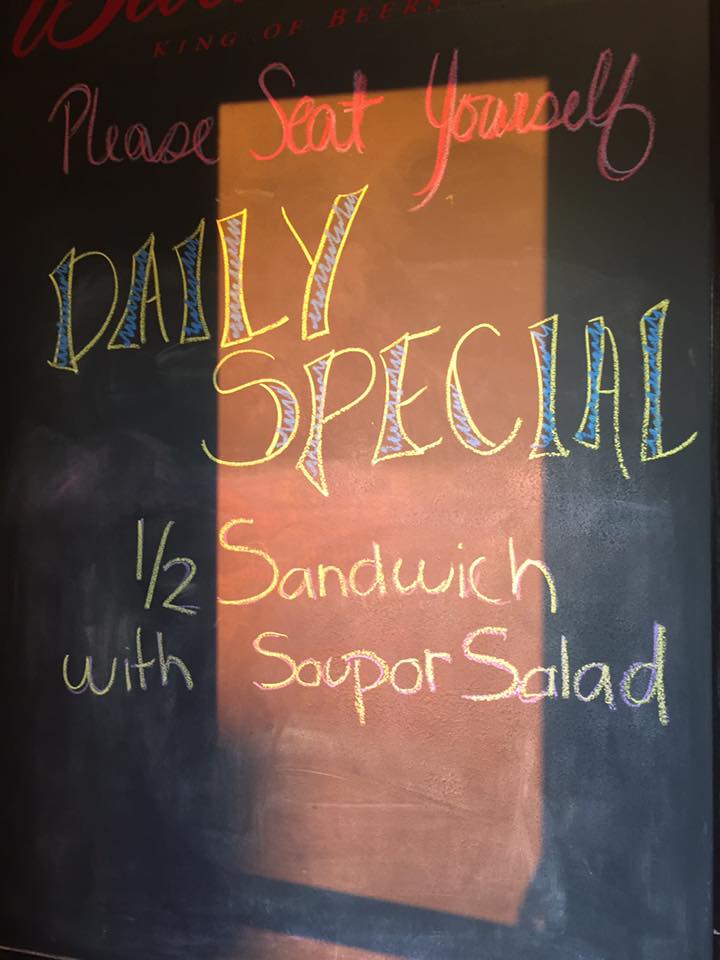 KING OF BEERS
Please Seat Yourself
DAILY
SPECIAL
1/2 Sandwich
with Soup or Salad